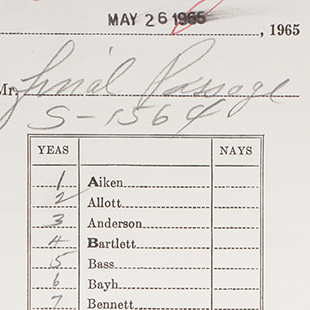 MAY 26 1965
, 1965
Mr. Final Passage
S-1564
YEAS NAYS
1 Aiken
2 Allott
3 Anderson
4 Bartlett
5 Bass
6 Bayh
7 Bennett